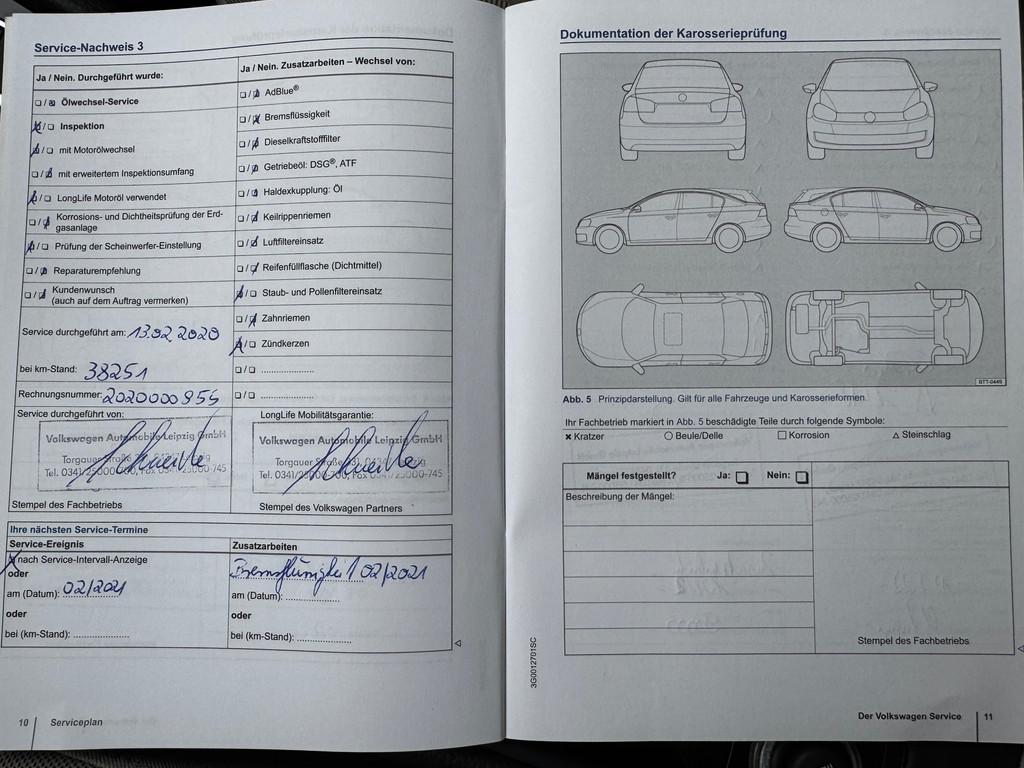 Service-Nachweis 3
Ja / Nein. Durchgeführt wurde:
Ölwechsel-Service
Inspektion
mit Motorölwechsel
mit erweitertem Inspektionsumfang
LongLife Motoröl verwendet
Korrosions- und Dichtheitsprüfung der Erd-
gasanlage
Prüfung der Scheinwerfer-Einstellung
Reparaturempfehlung
Kundenwunsch
(auch auf dem Auftrag vermerken)
Service durchgeführt am: 13.02.2020
bei km-Stand: 38251
Rechnungsnummer: 2020000955
Service durchgeführt von:
Volkswagen Automobile Leipzig GmbH
Torgauer
Tel. 0341/25000
Stempel des Fachbetriebs
Ja / Nein. Zusatzarbeiten – Wechsel von:
AdBlue®
Bremsflüssigkeit
Dieselkraftstofffilter
Getriebeöl: DSG®, ATF
Haldexkupplung: Öl
Keilrippenriemen
Luftfiltereinsatz
Reifenfüllflasche (Dichtmittel)
Staub- und Pollenfiltereinsatz
Zahnriemen
Zündkerzen
LongLife Mobilitätsgarantie:
Volkswagen Automobile Leipzig GmbH
Torgauer Straße
Tel. 0341/25000
Stempel des Volkswagen Partners
Ihre nächsten Service-Termine
Service-Ereignis
nach Service-Intervall-Anzeige
oder
am (Datum): 02/2021
oder
bei (km-Stand):
Zusatzarbeiten
02/2021
am (Datum):
oder
bei (km-Stand):
10 Serviceplan
Dokumentation der Karosserieprüfung
BTT-0449
Abb. 5 Prinzipdarstellung. Gilt für alle Fahrzeuge und Karosserieformen.
Ihr Fachbetrieb markiert in Abb. 5 beschädigte Teile durch folgende Symbole:
× Kratzer ○ Beule/Delle □ Korrosion △ Steinschlag
Mängel festgestellt? Ja: Nein:
Beschreibung der Mängel:
Stempel des Fachbetriebs
3G0012701SC
Der Volkswagen Service 11